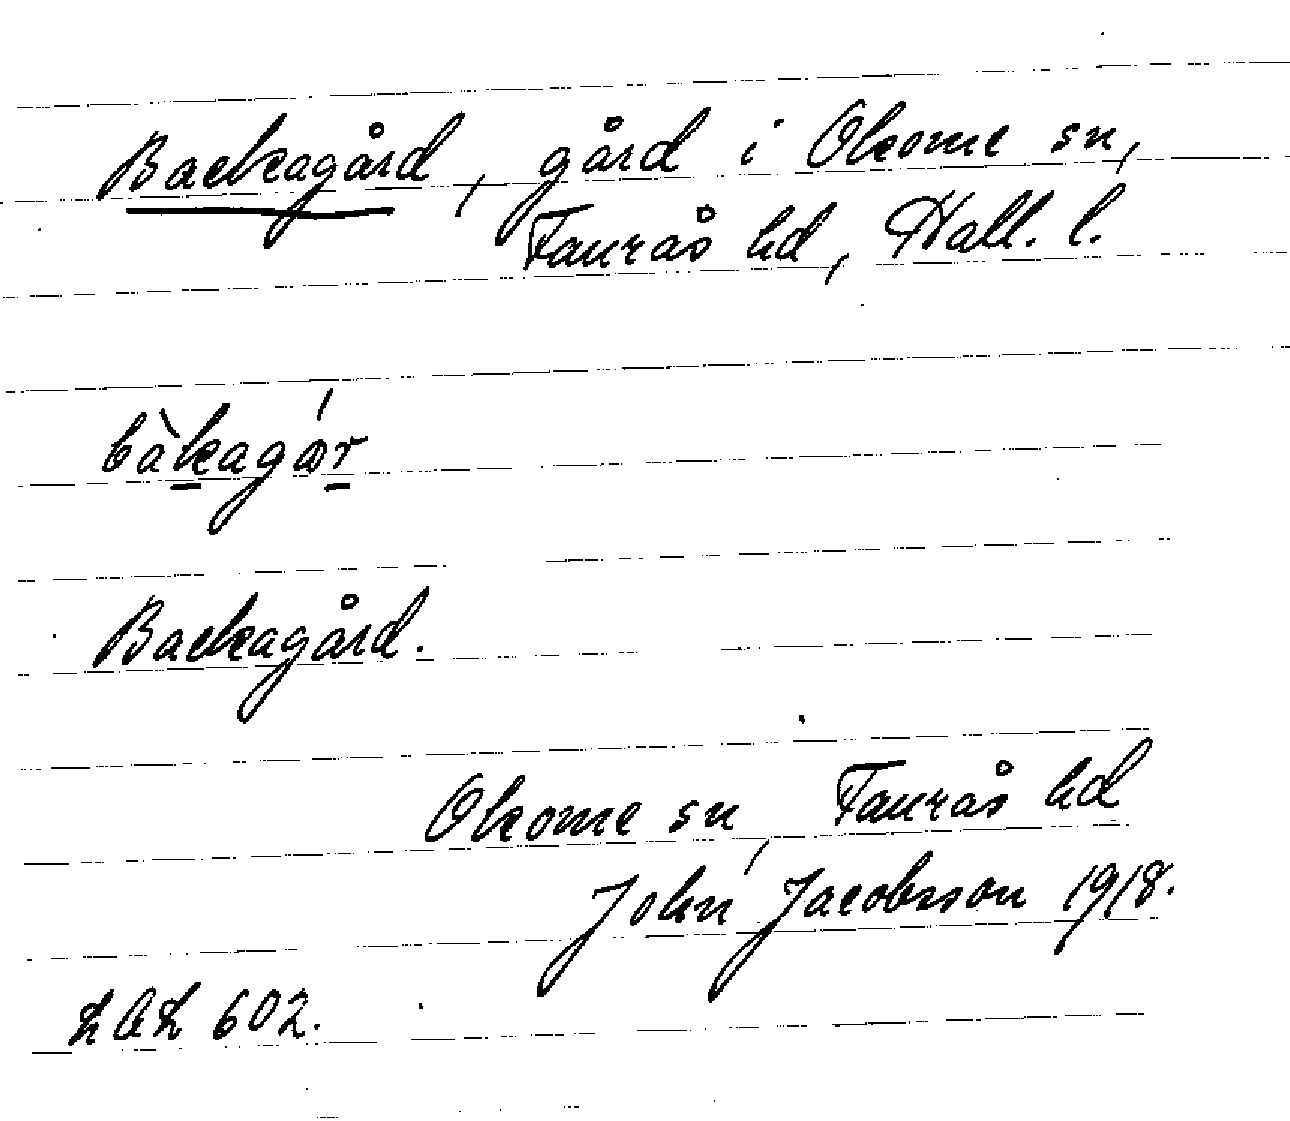 Backagård, gård i Okome sn,
Faurås hd, Hall. l.
bàkagɷ́r
Backagård.
Okome sn, Faurås hd
John Jacobsson 1918.